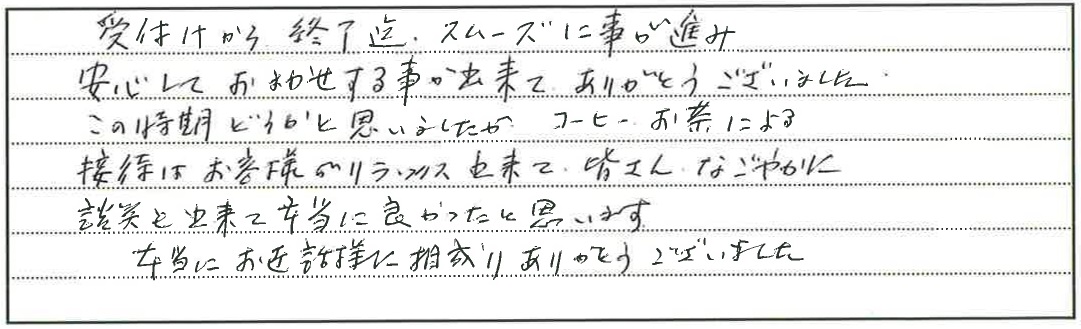 受付けから 終了迄、スムーズに事が進み
安心して おまかせする事が出来て ありがとうございました。
この時期 どうかと思いましたが コーヒー お茶による
接待は お客様がリラックス出来て、皆さん なごやかに
談笑も出来て本当に良かったと思います
本当に お世話様に相成り ありがとうございました